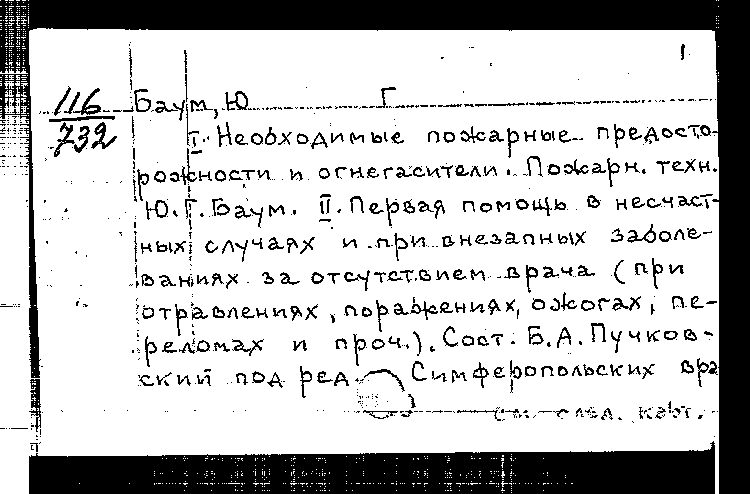 1
116
732
Баум, Ю Г
I. Необходимые пожарные предосто-
рожности и огнегасители. Пожарн. техн.
Ю.Г. Баум. II. Первая помощь в несчаст-
ных случаях и при внезапных заболе-
ваниях за отсутствием врача (при
отравлениях, поражениях, ожогах, пе-
реломах и проч.). Сост. Б.А. Пучков-
ский под ред. Симферопольских вра
см. след. карт.